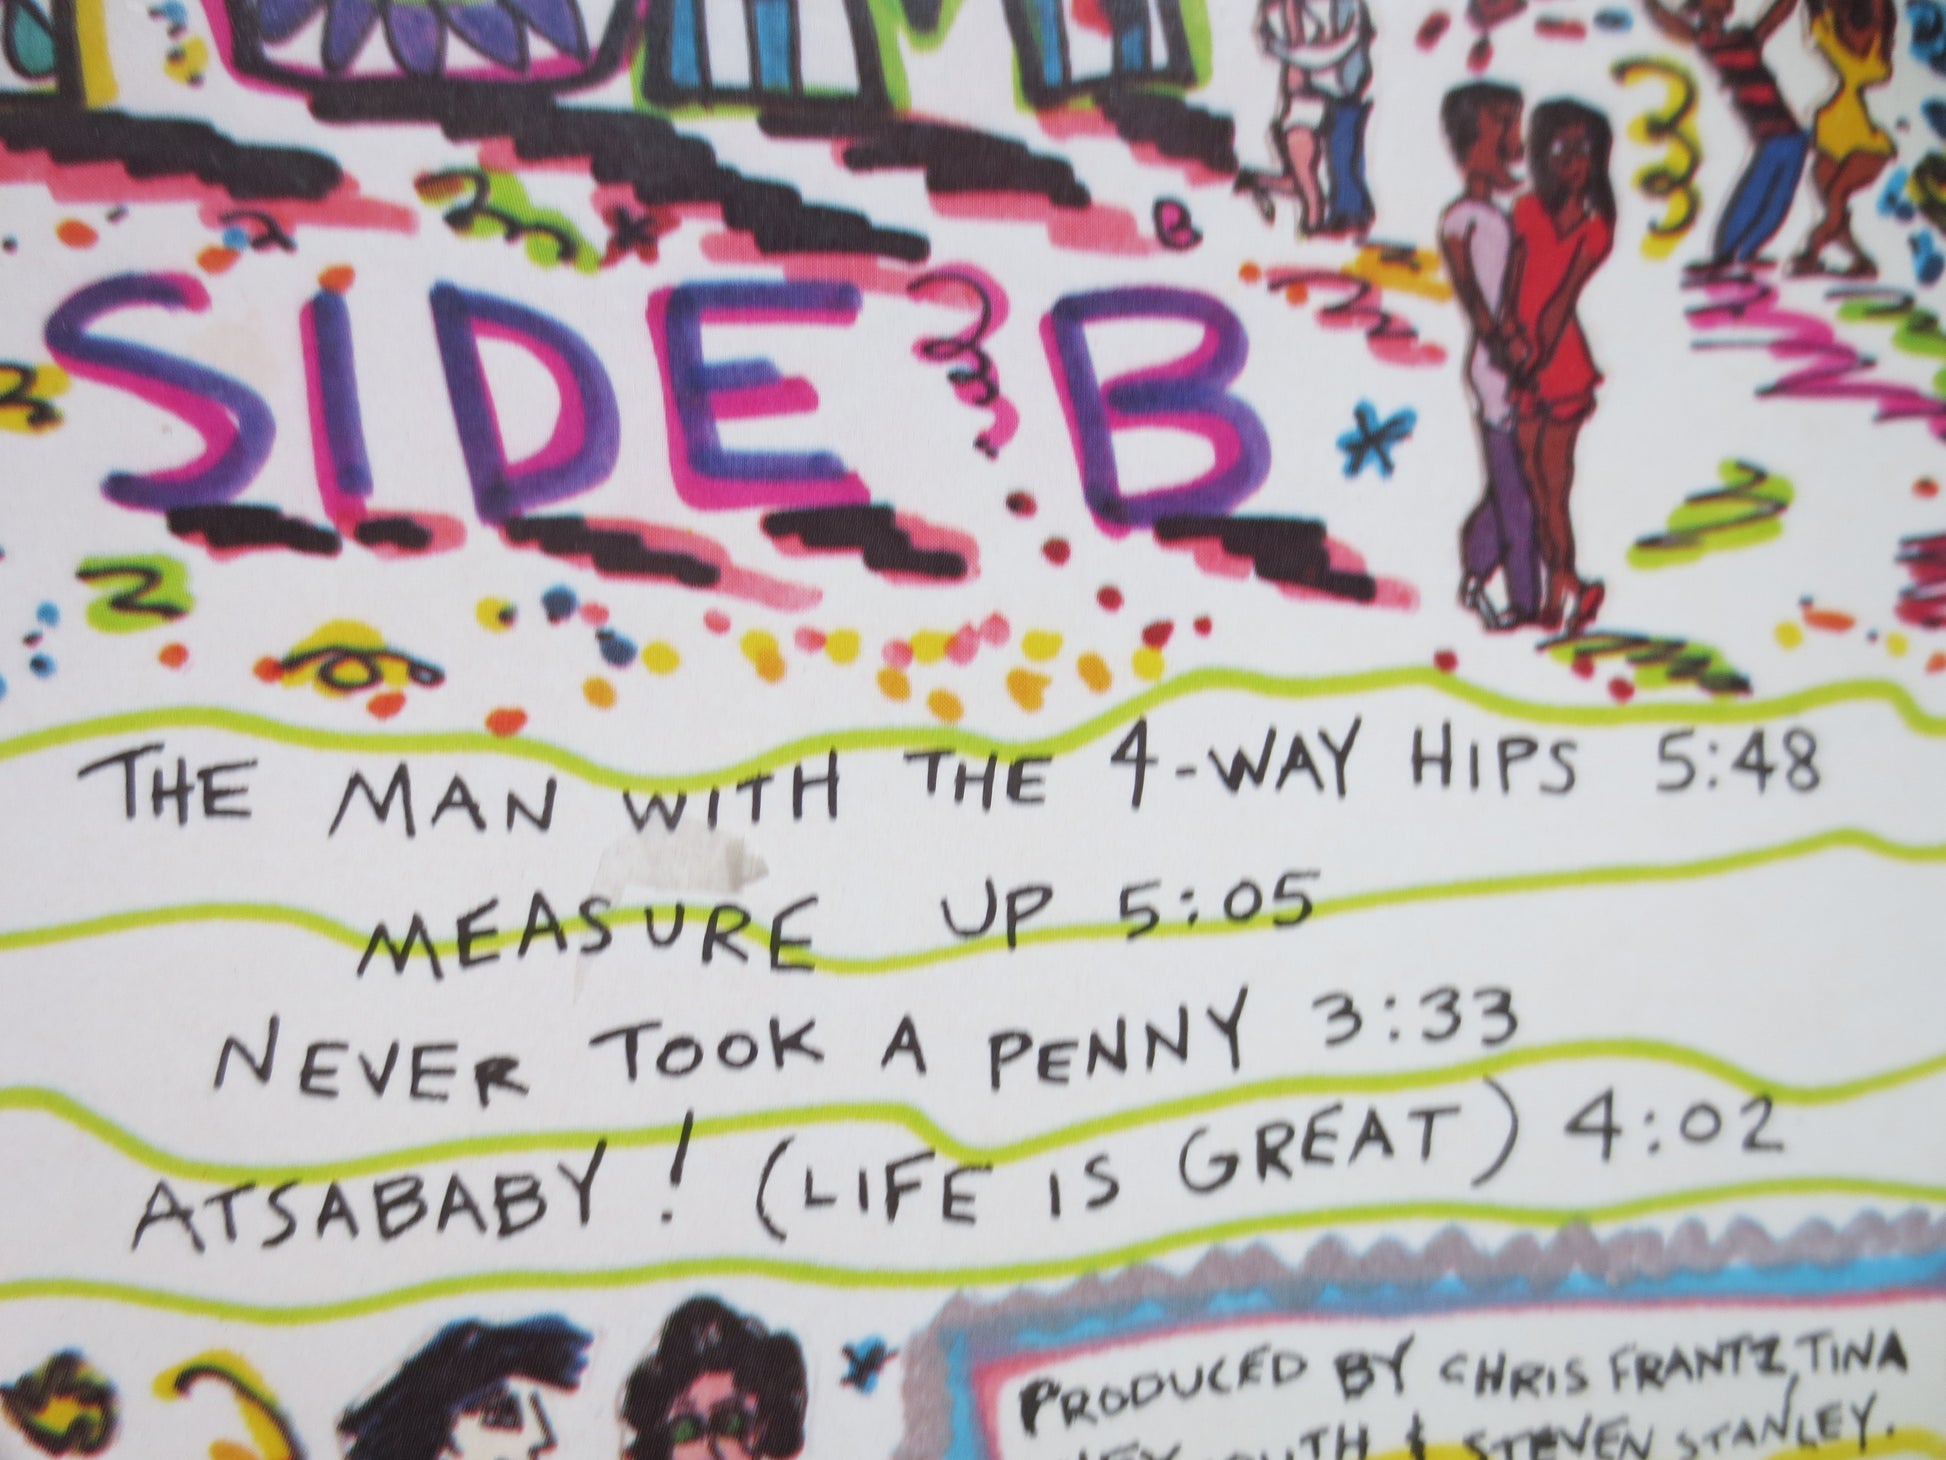 SIDE B
THE MAN WITH THE 4-WAY HIPS 5:48
MEASURE UP 5:05
NEVER TOOK A PENNY 3:33
ATSABABY! (LIFE IS GREAT) 4:02
PRODUCED BY CHRIS FRANTZ, TINA
& STEVEN STANLEY.